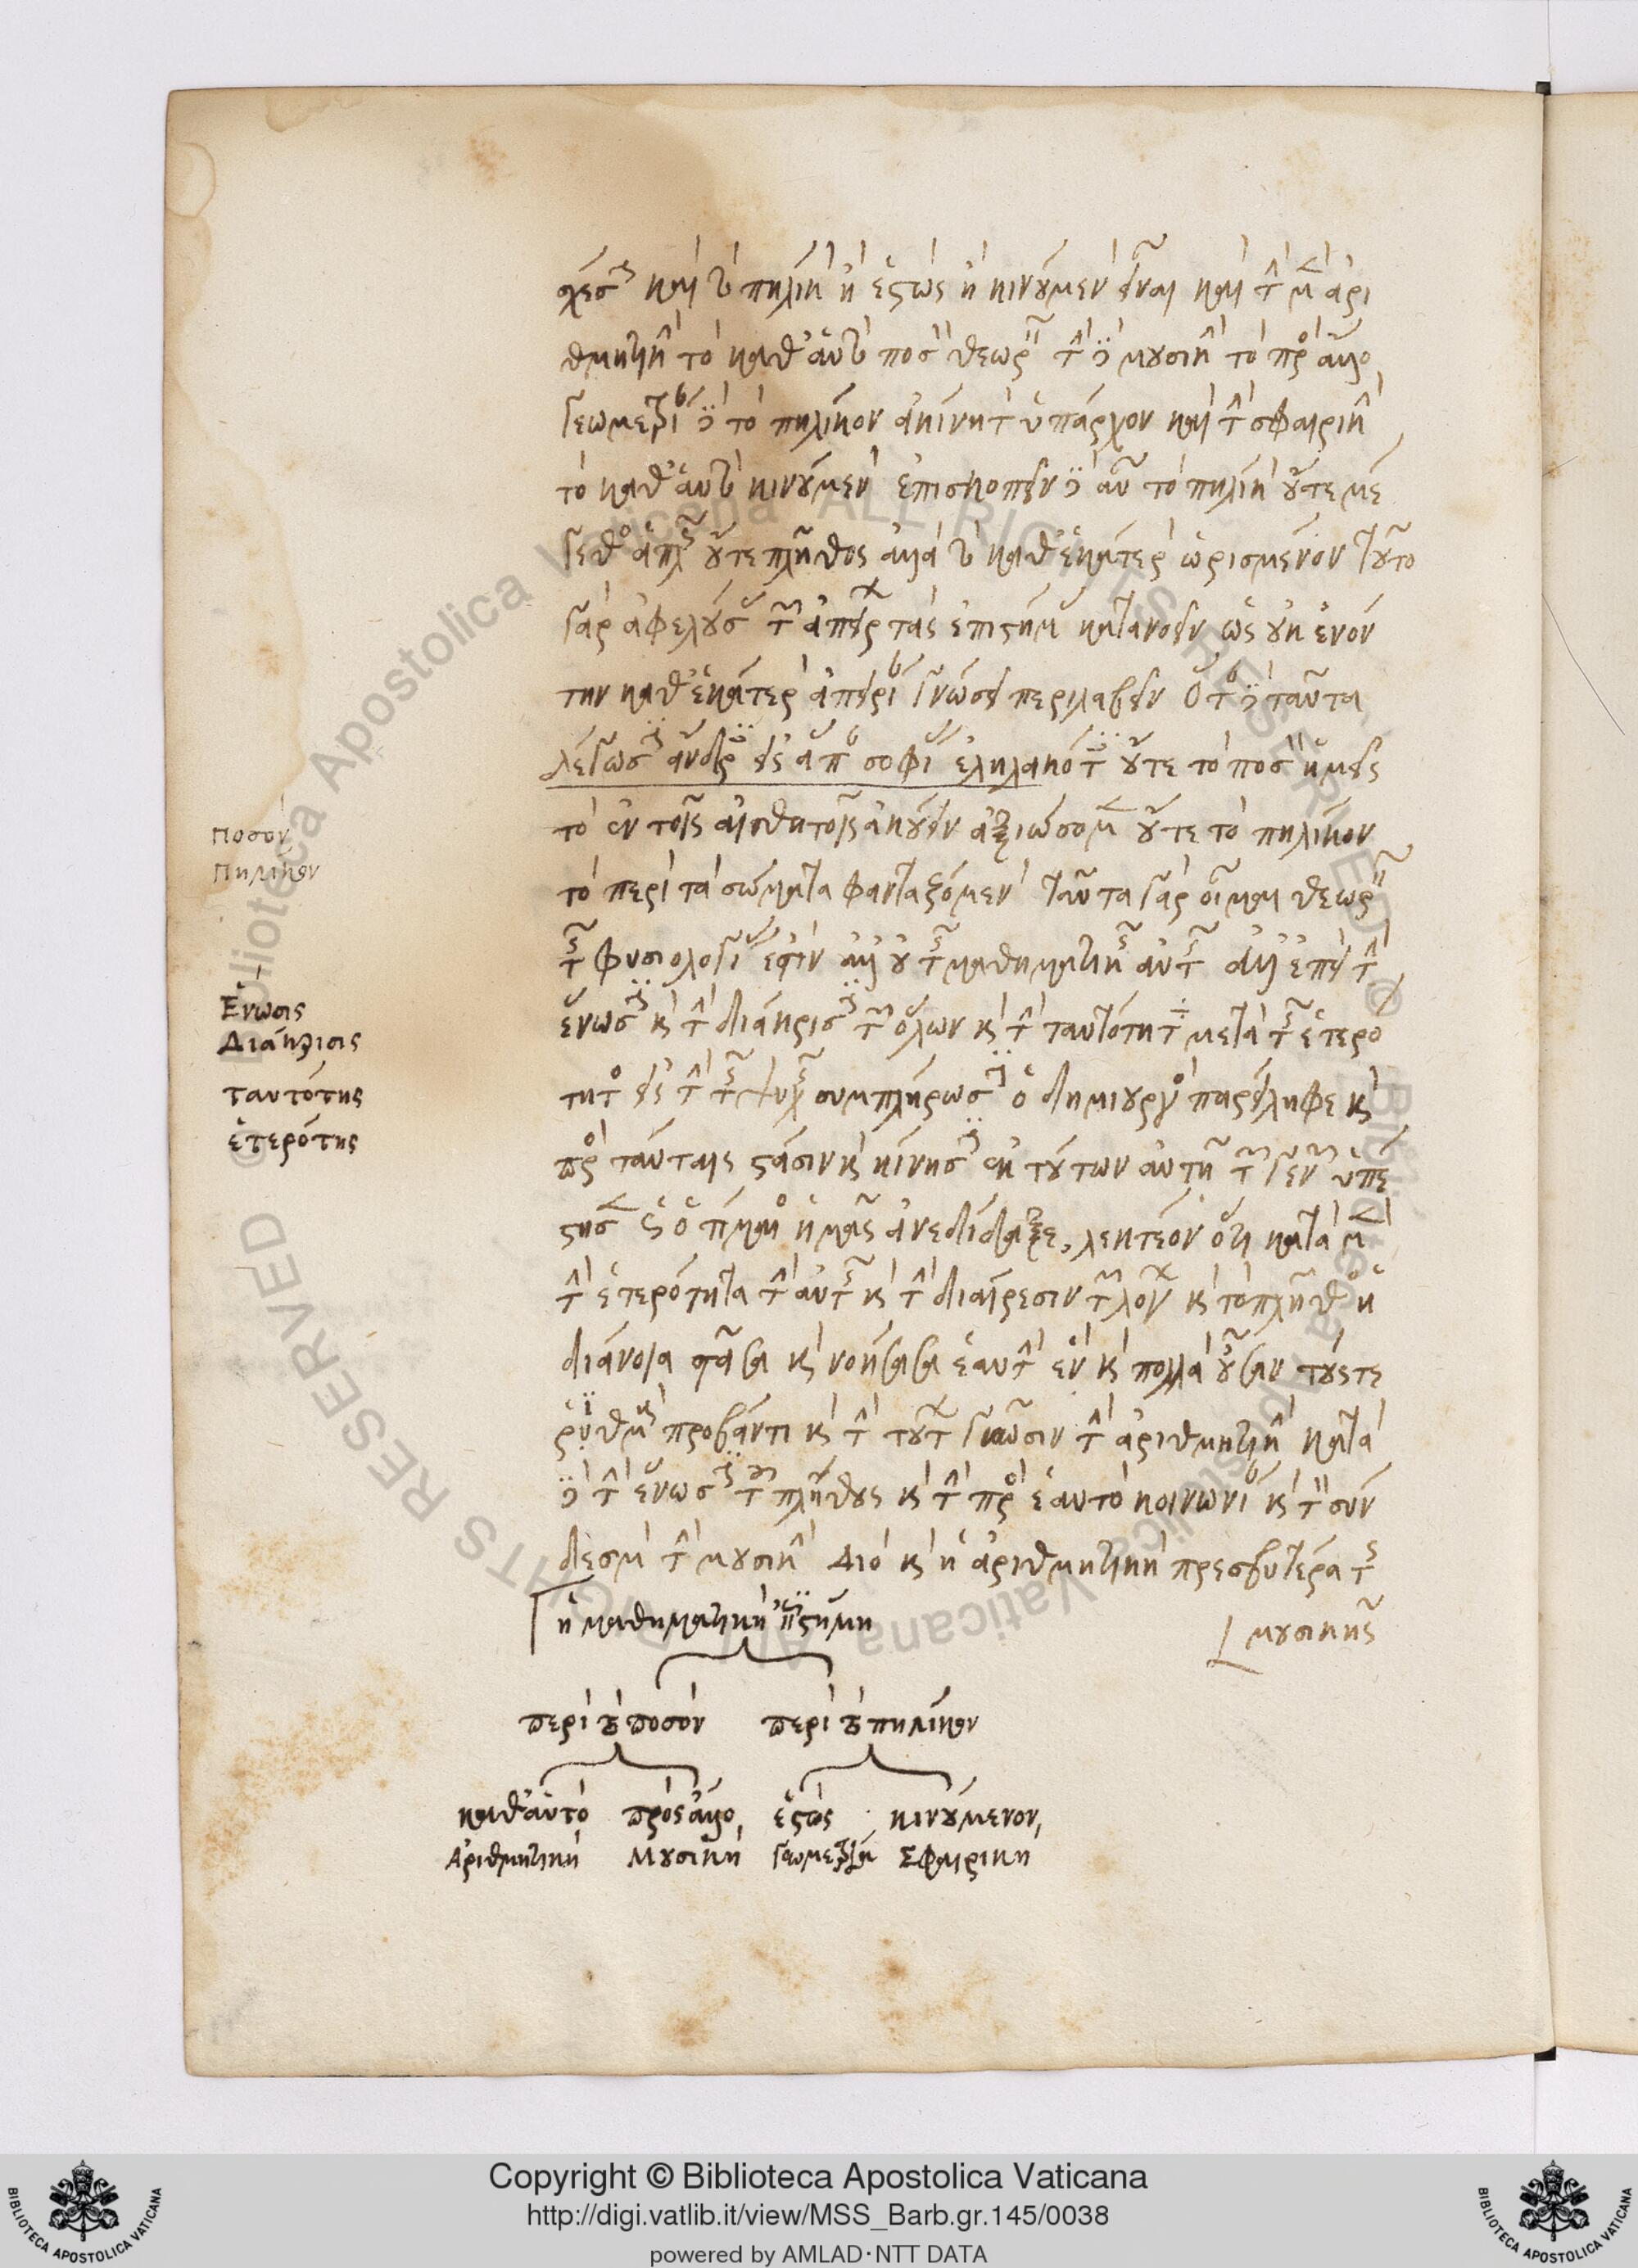 σχέσ καὶ τὸ πηλίκ ἢ ἑστὼς ἢ κινούμεν εἶναι καὶ τὴν μὲν ἀρι
θμητικὴν τὸ καθ' αὑτὸ ποσὸν θεωρεῖν τὴν δὲ μουσικὴν τὸ πρὸς ἄλλο,
γεωμετρίαν δὲ τὸ πηλίκον ἀκίνητον ὑπάρχον καὶ τὴν σφαιρικὴν
τὸ καθ' αὑτὸ κινούμενον ἐπισκοπεῖν δὲ αὖ τὸ πηλίκον οὔτε μέ
γεθος ἁπλῶς οὔτε πλῆθος ἀλλὰ τὸ καθ' ἑκάτερον ὡρισμένον τοῦτο
γὰρ ἀφελούσας τῶν ἀπείρων τὰς ἐπιστήμας κατανοεῖν ὡς οὐκ ἐνὸν
τὴν καθ' ἑκάτερον ἀπειρίαν γνώσει περιλαβεῖν ὅταν δὲ ταῦτα
λέγωσιν ἄνδρες εἰς ἅπασαν σοφίαν ἐληλακότες οὔτε τὸ ποσὸν ἡμεῖς
τὸ ἐν τοῖς αἰσθητοῖς ἀκούειν ἀξιώσομεν οὔτε τὸ πηλίκον
τὸ περὶ τὰ σώματα φανταζόμενον ταῦτα γὰρ οἶμαι θεωρεῖν
τῆς φυσιολογίας ἐστὶν ἀλλ' οὐ τῆς μαθηματικῆς αὐτῆς ἀλλ' ἐπεὶ τὴν
ἕνωσιν καὶ τὴν διάκρισιν τῶν ὅλων καὶ τὴν ταυτότητα μετὰ τῆς ἑτερό
τητος εἰς τὴν τῆς ψυχῆς συμπλήρωσιν ὁ δημιουργὸς παρείληφε καὶ
πρὸς ταύταις στάσιν καὶ κίνησιν ἐκ τούτων αὐτὴν τῶν γενῶν ὑπέ
στησεν ὡς ὁ τίμαιος ἡμᾶς ἀνεδίδαξε, λεκτέον ὅτι κατὰ μὲν
τὴν ἑτερότητα τὴν αὐτῆς καὶ τὴν διαίρεσιν τῶν λόγων καὶ τὸ πλῆθος ἡ
διάνοια στᾶσα καὶ νοήσασα ἑαυτὴν ἓν καὶ πολλὰ οὖσαν τούς τε
ἀριθμοὺς προβάλλει καὶ τὴν τούτων γνῶσιν τὴν ἀριθμητικὴν κατὰ
δὲ τὴν ἕνωσιν τοῦ πλήθους καὶ τὴν πρὸς ἑαυτὸ κοινωνίαν καὶ τὸν σύν
δεσμον τὴν μουσικὴν Διὸ καὶ ἡ ἀριθμητικὴ πρεσβυτέρα τῆς
μουσικῆς
ποσον
πηλικον
Ἕνωσις
Διάκρισις
ταυτότης
ἑτερότης
ἡ μαθηματικὴ ἐπιστήμη
περὶ τὸ ποσὸν περὶ τὸ πηλίκον
καθ' αὑτὸ πρὸς ἄλλο, ἑστὼς κινούμενον,
Ἀριθμητικὴ Μουσικὴ Γεωμετρία Σφαιρικη
Copyright © Biblioteca Apostolica Vaticana
http://digi.vatlib.it/view/MSS_Barb.gr.145/0038
powered by AMLAD·NTT DATA
BIBLIOTECA APOSTOLICA VATICANA
BIBLIOTECA APOSTOLICA VATICANA